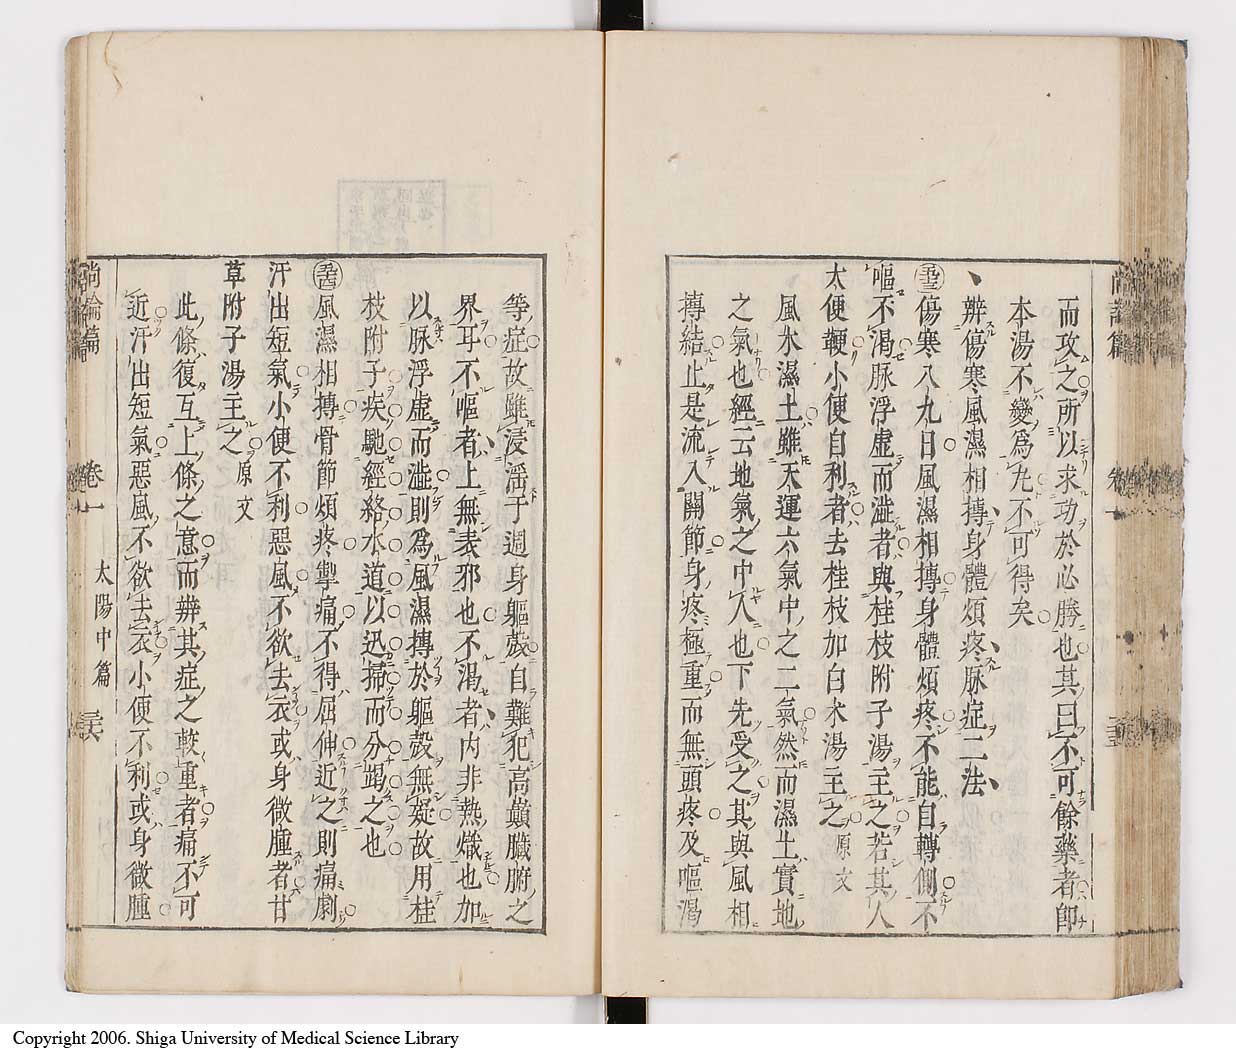 而攻之所以求功於必勝也其曰不可餘藥者卽
本湯不變爲丸不可得矣
辨傷寒風濕相搏身體煩疼脉症二法
傷寒八九日風濕相搏身體煩疼不能自轉側不
嘔不渴脉浮虛而澁者與桂枝附子湯主之若其人
大便鞕小便自利者去桂枝加白朮湯主之原文
風木濕土雖天運六氣中之二氣然而濕土實地
之氣也經云地氣之中人也下先受之其與風相
搏結止是流入關節身疼極重而無頭疼及嘔渴
等症故雖浸淫于週身軀殼自難犯高巔臟腑之
界耳不嘔者上無表邪也不渴者內非熱熾也加
以脉浮虛而澁則爲風濕搏於軀殼無疑故用桂
枝附子疾馳經絡水道以迅掃而分竭之也
風濕相搏骨節煩疼掣痛不得屈伸近之則痛劇
汗出短氣小便不利惡風不欲去衣或身微腫者甘
草附子湯主之原文
此條復互上條之意而辨其症之較重者痛不可
近汗出短氣惡風不欲去衣小便不利或身微腫
尚論篇 卷一 太陽中篇
Copyright 2006. Shiga University of Medical Science Library